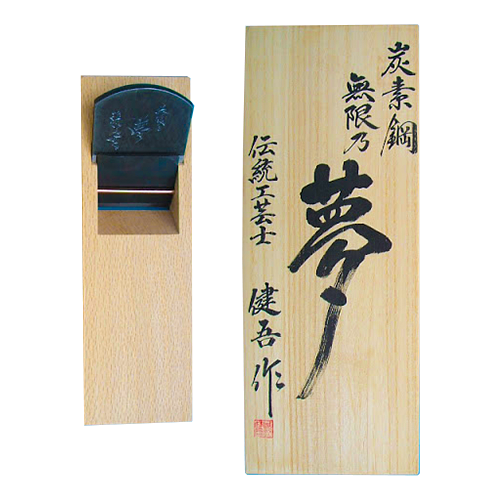 炭素鋼
無限乃
夢
伝統工芸士
健吾作